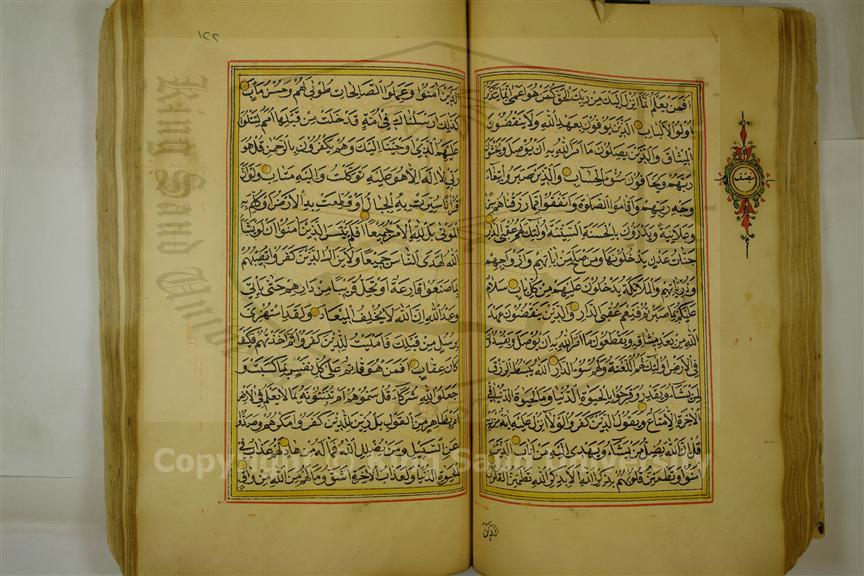 افمن يعلم انما انزل اليك من ربك الحق كمن هو اعمى انما يتذكر
اولوا الالباب الذين يوفون بعهد الله ولا ينقضون
الميثاق والذين يصلون ما امر الله به ان يوصل ويخشون
ربهم ويخافون سوء الحساب والذين صبروا ابتغاء
وجه ربهم واقاموا الصلوة وانفقوا مما رزقناهم سرا
وعلانية ويدرؤن بالحسنة السيئة اولئك لهم عقبى الدار
جنات عدن يدخلونها ومن صلح من ابائهم وازواجهم
وذرياتهم والملائكة يدخلون عليهم من كل باب سلام
عليكم بما صبرتم فنعم عقبى الدار والذين ينقضون عهد
الله من بعد ميثاقه ويقطعون ما امر الله به ان يوصل ويفسدون
في الارض اولئك لهم اللعنة ولهم سوء الدار الله يبسط الرزق
لمن يشاء ويقدر وفرحوا بالحيوة الدنيا وما الحيوة الدنيا في
الاخرة الا متاع ويقول الذين كفروا لولا انزل عليه اية من ربه
قل ان الله يضل من يشاء ويهدي اليه من اناب الذين
امنوا وتطمئن قلوبهم بذكر الله الا بذكر الله تطمئن القلوب
الذين
نصف
الذين امنوا وعملوا الصالحات طوبى لهم وحسن ماب
كذلك ارسلناك في امة قد خلت من قبلها امم لتتلوا
عليهم الذي اوحينا اليك وهم يكفرون بالرحمن قل هو
ربي لا اله الا هو عليه توكلت واليه متاب ولو ان
قرانا سيرت به الجبال او قطعت به الارض او كلم به
الموتى بل لله الامر جميعا افلم يايئس الذين امنوا ان لو يشاء
الله لهدى الناس جميعا ولا يزال الذين كفروا تصيبهم
بما صنعوا قارعة او تحل قريبا من دارهم حتى ياتي
وعد الله ان الله لا يخلف الميعاد ولقد استهزئ
برسل من قبلك فامليت للذين كفروا ثم اخذتهم فكيف
كان عقاب افمن هو قائم على كل نفس بما كسبت و
جعلوا لله شركاء قل سموهم ام تنبئونه بما لا يعلم في الارض
ام بظاهر من القول بل زين للذين كفروا مكرهم وصدوا
عن السبيل ومن يضلل الله فما له من هاد لهم عذاب في
الحيوة الدنيا ولعذاب الاخرة اشق وما لهم من الله من واق
King Saud University
Copyright © King Saud University